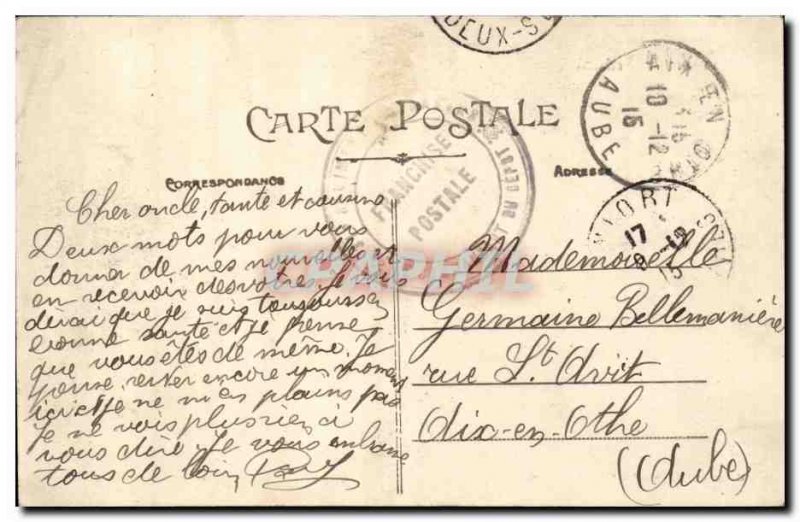 DEUX-S
CARTE POSTALE
CORRESPONDANCE
ADRESSE
FRANCHISE
POSTALE
DEPOT
EN OT
10-12
15
AUBE
NIORT
17
9-12
15
CPAPHIL
Cher oncle, tante et cousins
Deux mots pour vous
donner de mes nouvelles et
en recevoir des votres. Je vous
dirai que je suis toujours en
bonne santé et je pense
que vous êtes de même. Je
pense rester encore un moment
ici et je ne m'en plains pas
Je ne vois plus rien à
vous dire. Je vous embrasse
tous de
Mademoiselle
Germaine Bellemanière
rue St Avit
Aix-en-Othe
(Aube)